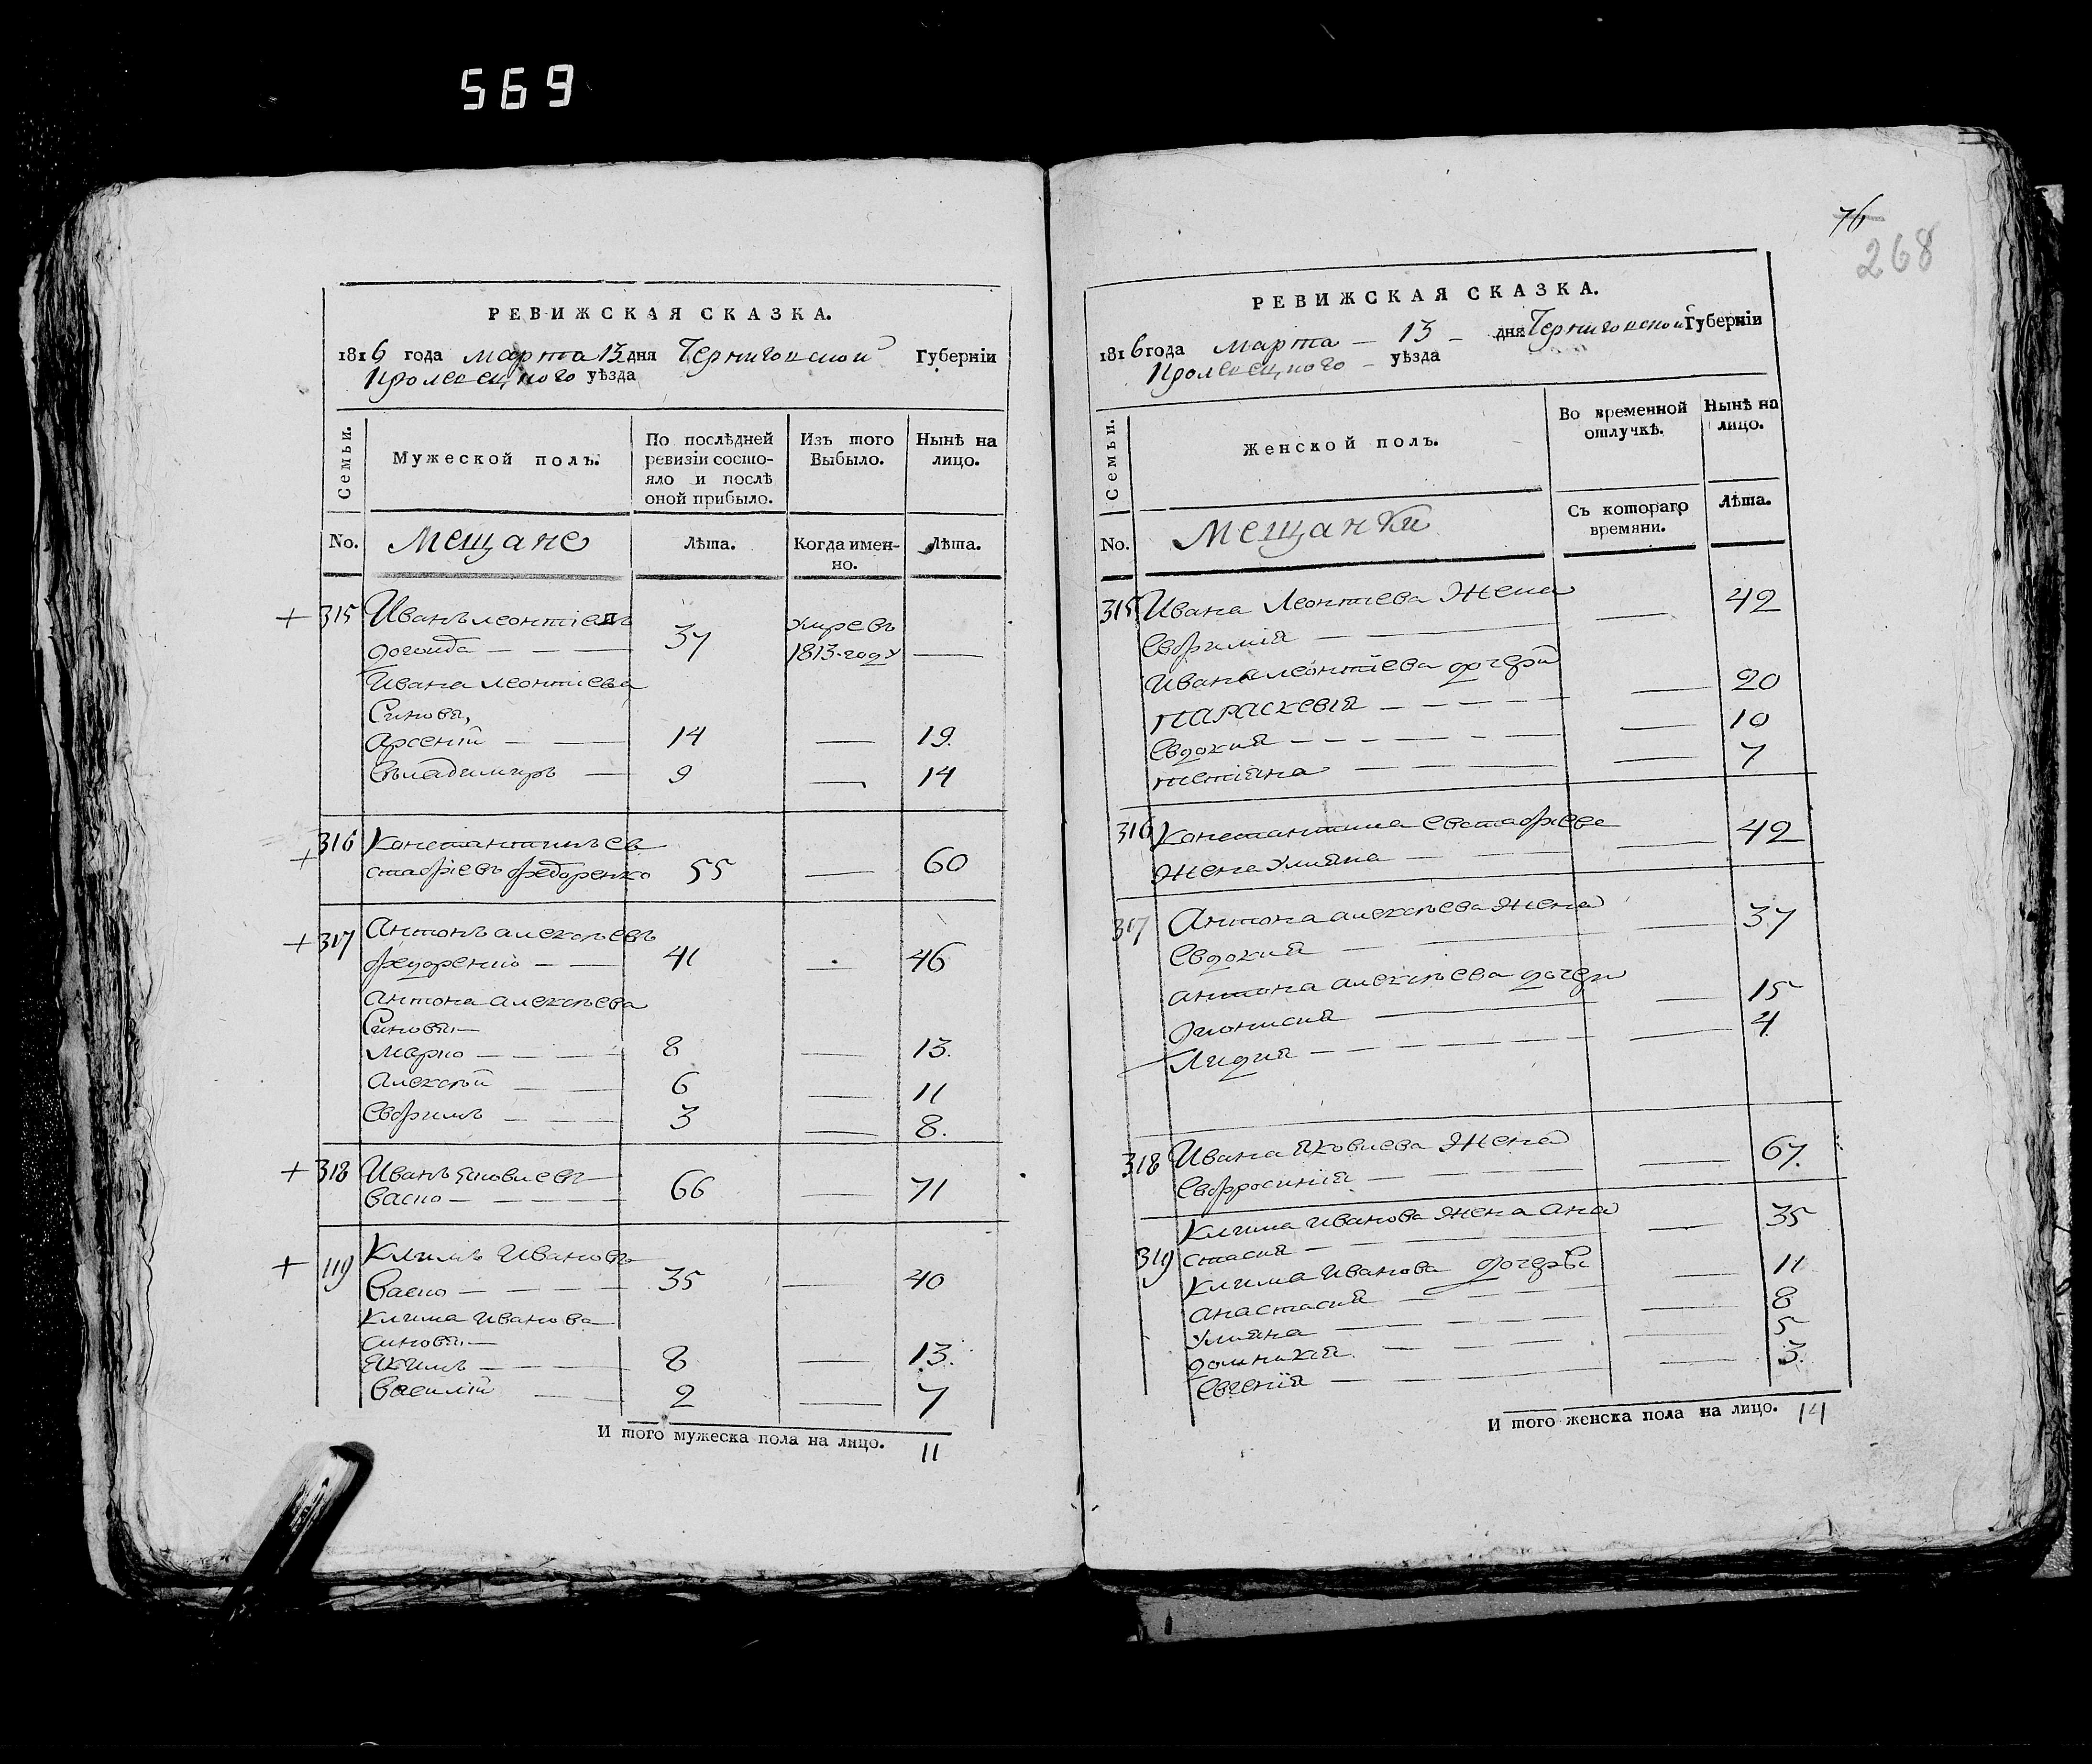 569
РЕВИЖСКАЯ СКАЗКА.
1816 года марта 13 дня Черниговской Губерніи
Кролевецкого уѣзда
Семьи.
Мужеской полъ.
По послѣдней ревизіи состояло и послѣ оной прибыло.
Изъ того Выбыло.
Нынѣ на лицо.
No.
Мещане
Лѣта.
Когда именно.
Лѣта.
+ 315 Иванъ леонтіевъ
37 умре въ 1813-году —
Ивана леонтіева
Синовя,
арсеній — 14 — 19.
Овладимиръ — 9 — 14
+ 316 Константинъ ев
стафіевъ федоренко 55 — 60
+ 317 Антонъ алексѣевъ
федоренко — 41 — 46
Антона алексѣева
Синовя —
марко — 8 — 13.
алексѣй — 6 — 11
Ефимъ — 3 — 8.
+ 318 Иванъ яковлевъ
васко — 66 — 71
+ 119 Климъ Ивановъ
Васко — 35 — 40
Клима иванова
синовя —
якимъ — 8 — 13.
Василій — 2 — 7
И того мужеска пола на лицо. 11
76
268
РЕВИЖСКАЯ СКАЗКА.
1816 года марта — 13 — дня Черниговской Губерніи
Кролевецкого — уѣзда
Семьи.
Женской полъ.
Во временной отлучкѣ.
Нынѣ на лицо.
No.
Мещанки
Съ котораго времяни.
Лѣта.
315 Ивана Леонтева Жена — 42
Евфимія —
Ивана леонтіева дочери
ПАРАСКЕВІЯ — 20
Евдокия — 10
тетіяна — 7
316 Константина евстафіева
Жена Улияна — 42
317 Антона алексѣева Жена — 37
Евдокия —
антона алексѣева дочери
дионисия — 15
Лидия — 4.
318 Ивана яковлева Жена — 67.
Евфросинія —
Клима иванова жена ана — 35
319 стасия —
Клима Иванова дочерѣ
анастасия — 11
Улияна — 8
домникия — 5
евгенія — 3.
И того женска пола на лицо. 14